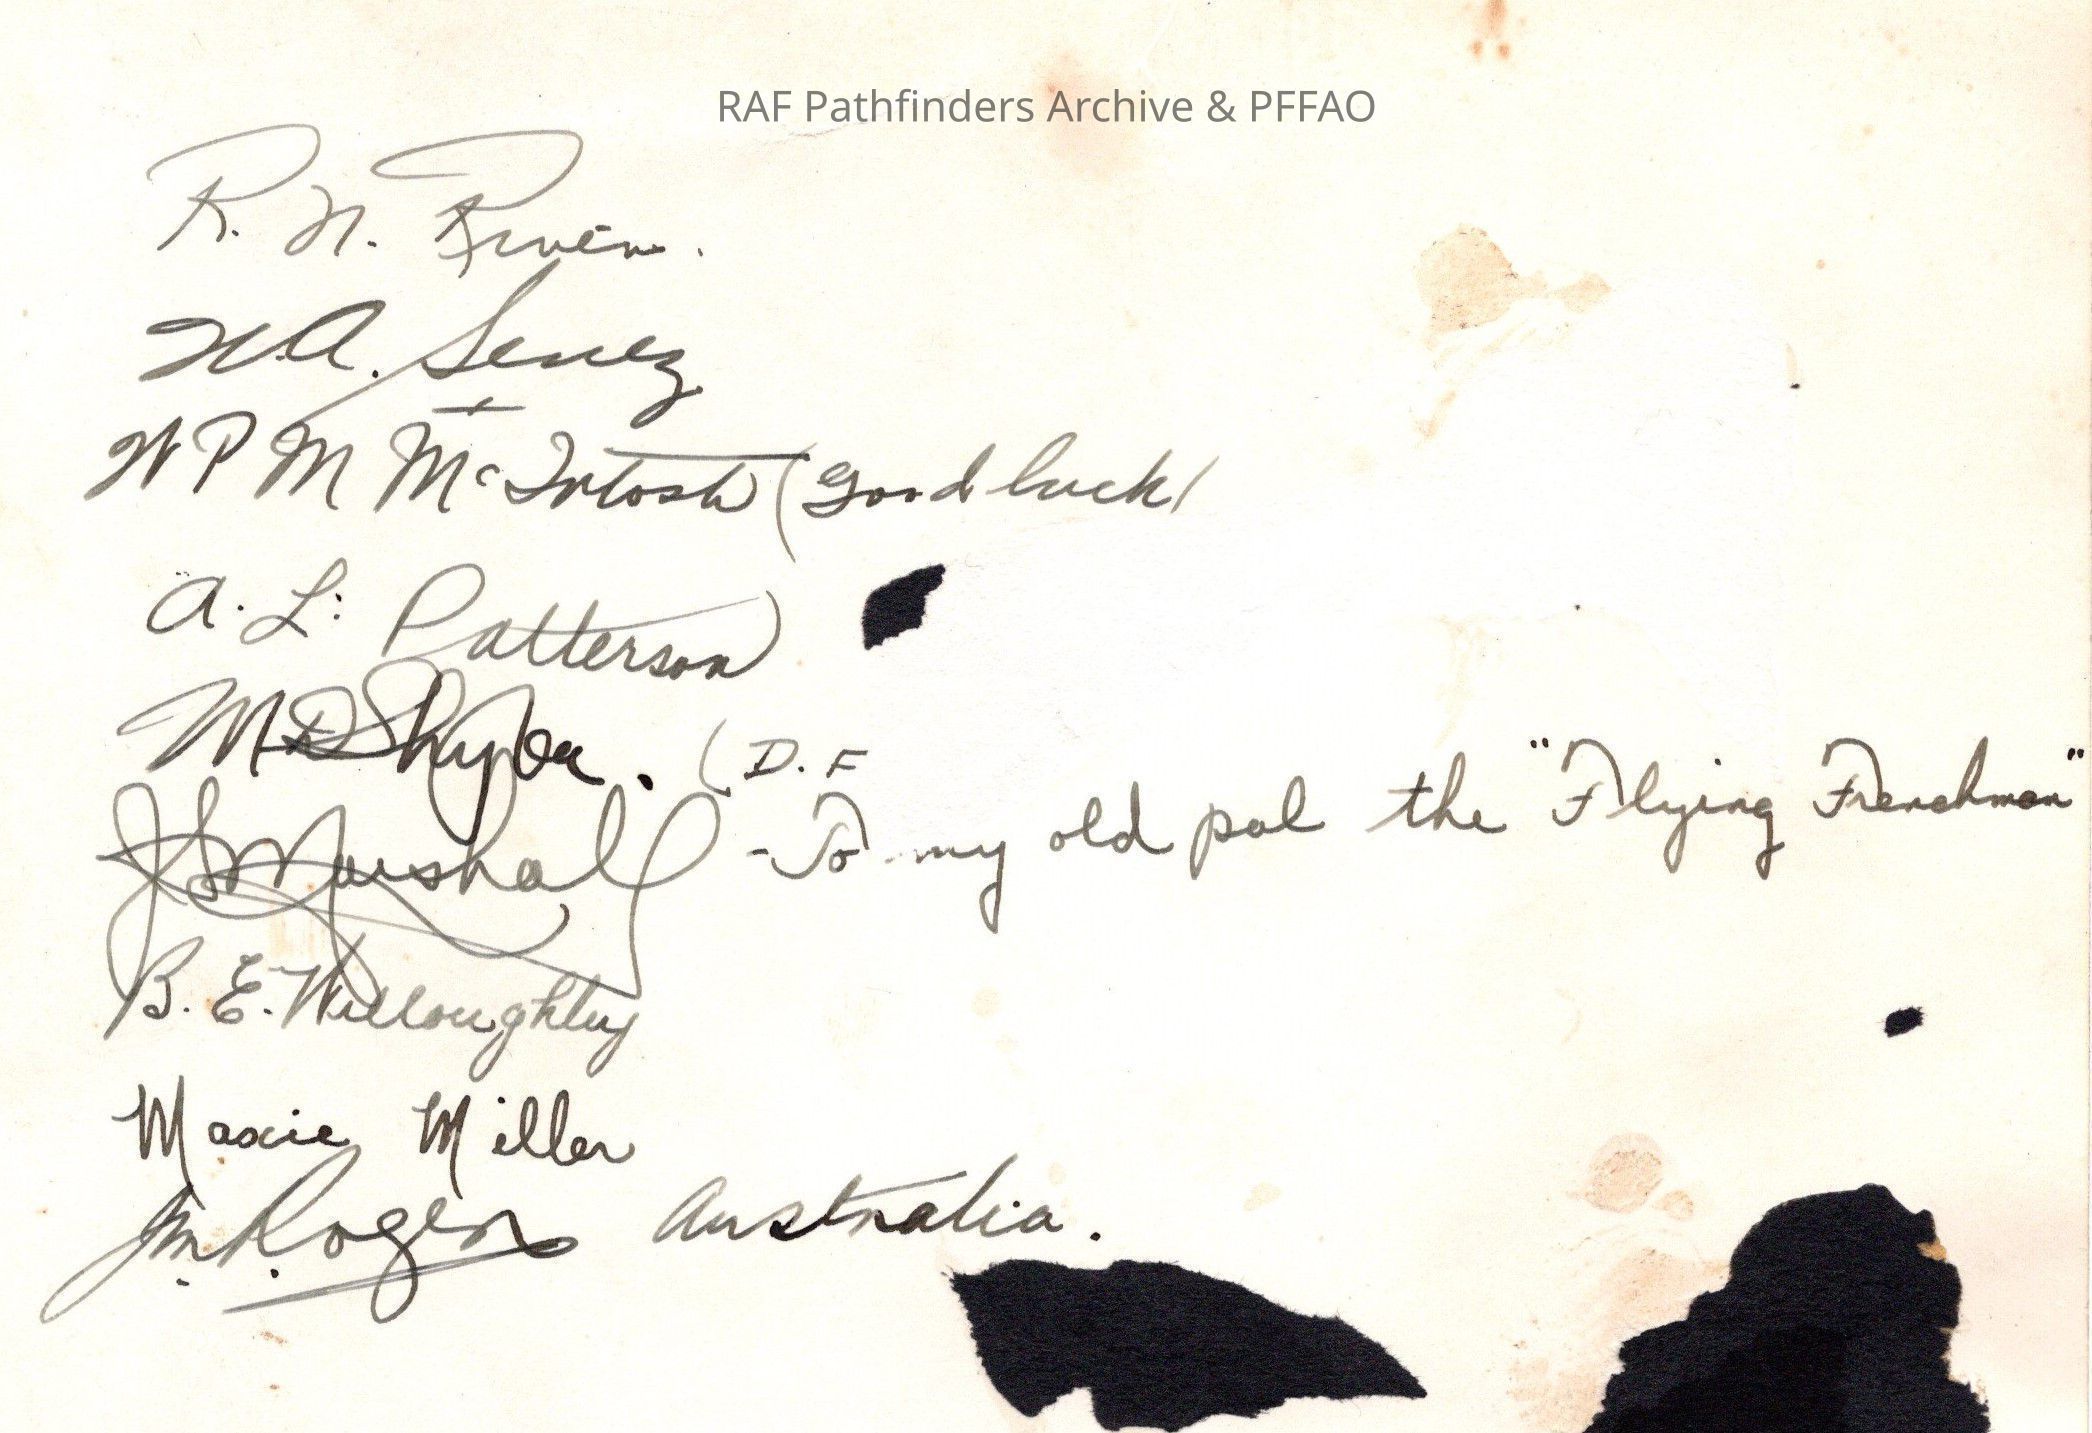 RAF Pathfinders Archive & PFFAO
R. N.
A. Senez
W P M McIntosh (Good luck)
A. L. Patterson
M. D. (D. F
J Marshall - To my old pal the "Flying Frenchman"
B. E. Willoughby
Maxie Miller
J.M. Rogers Australia.